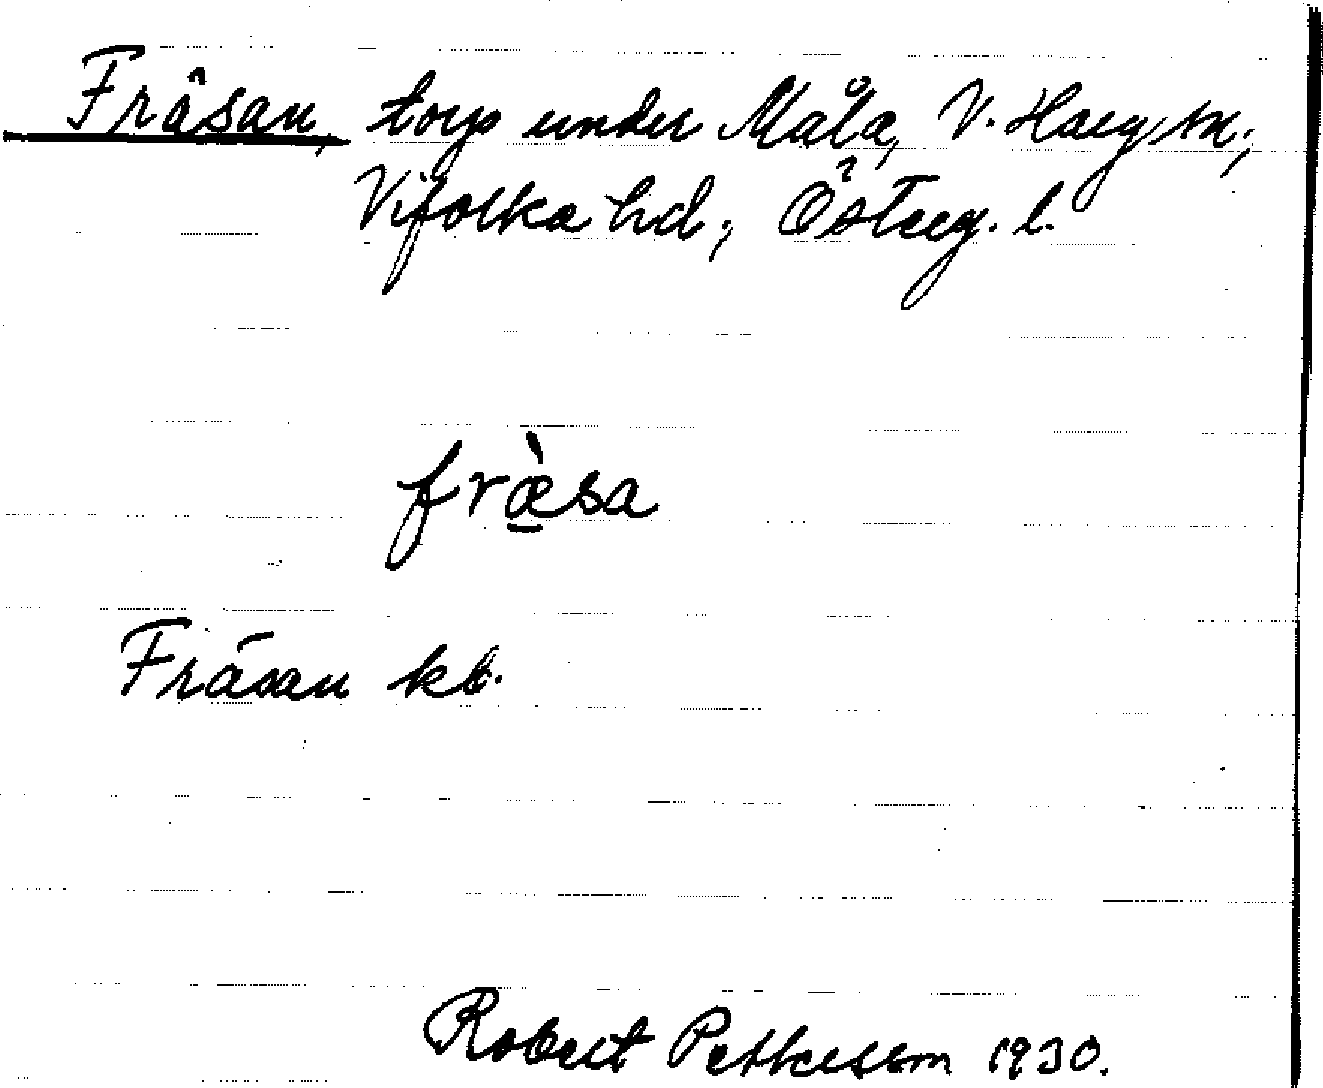 Fräsan, torp under Måla, V. Harg sn,
Vifolka hd, Österg. l.
fræ̀sa
Fräsan kb.
Robert Pettersson 1930.